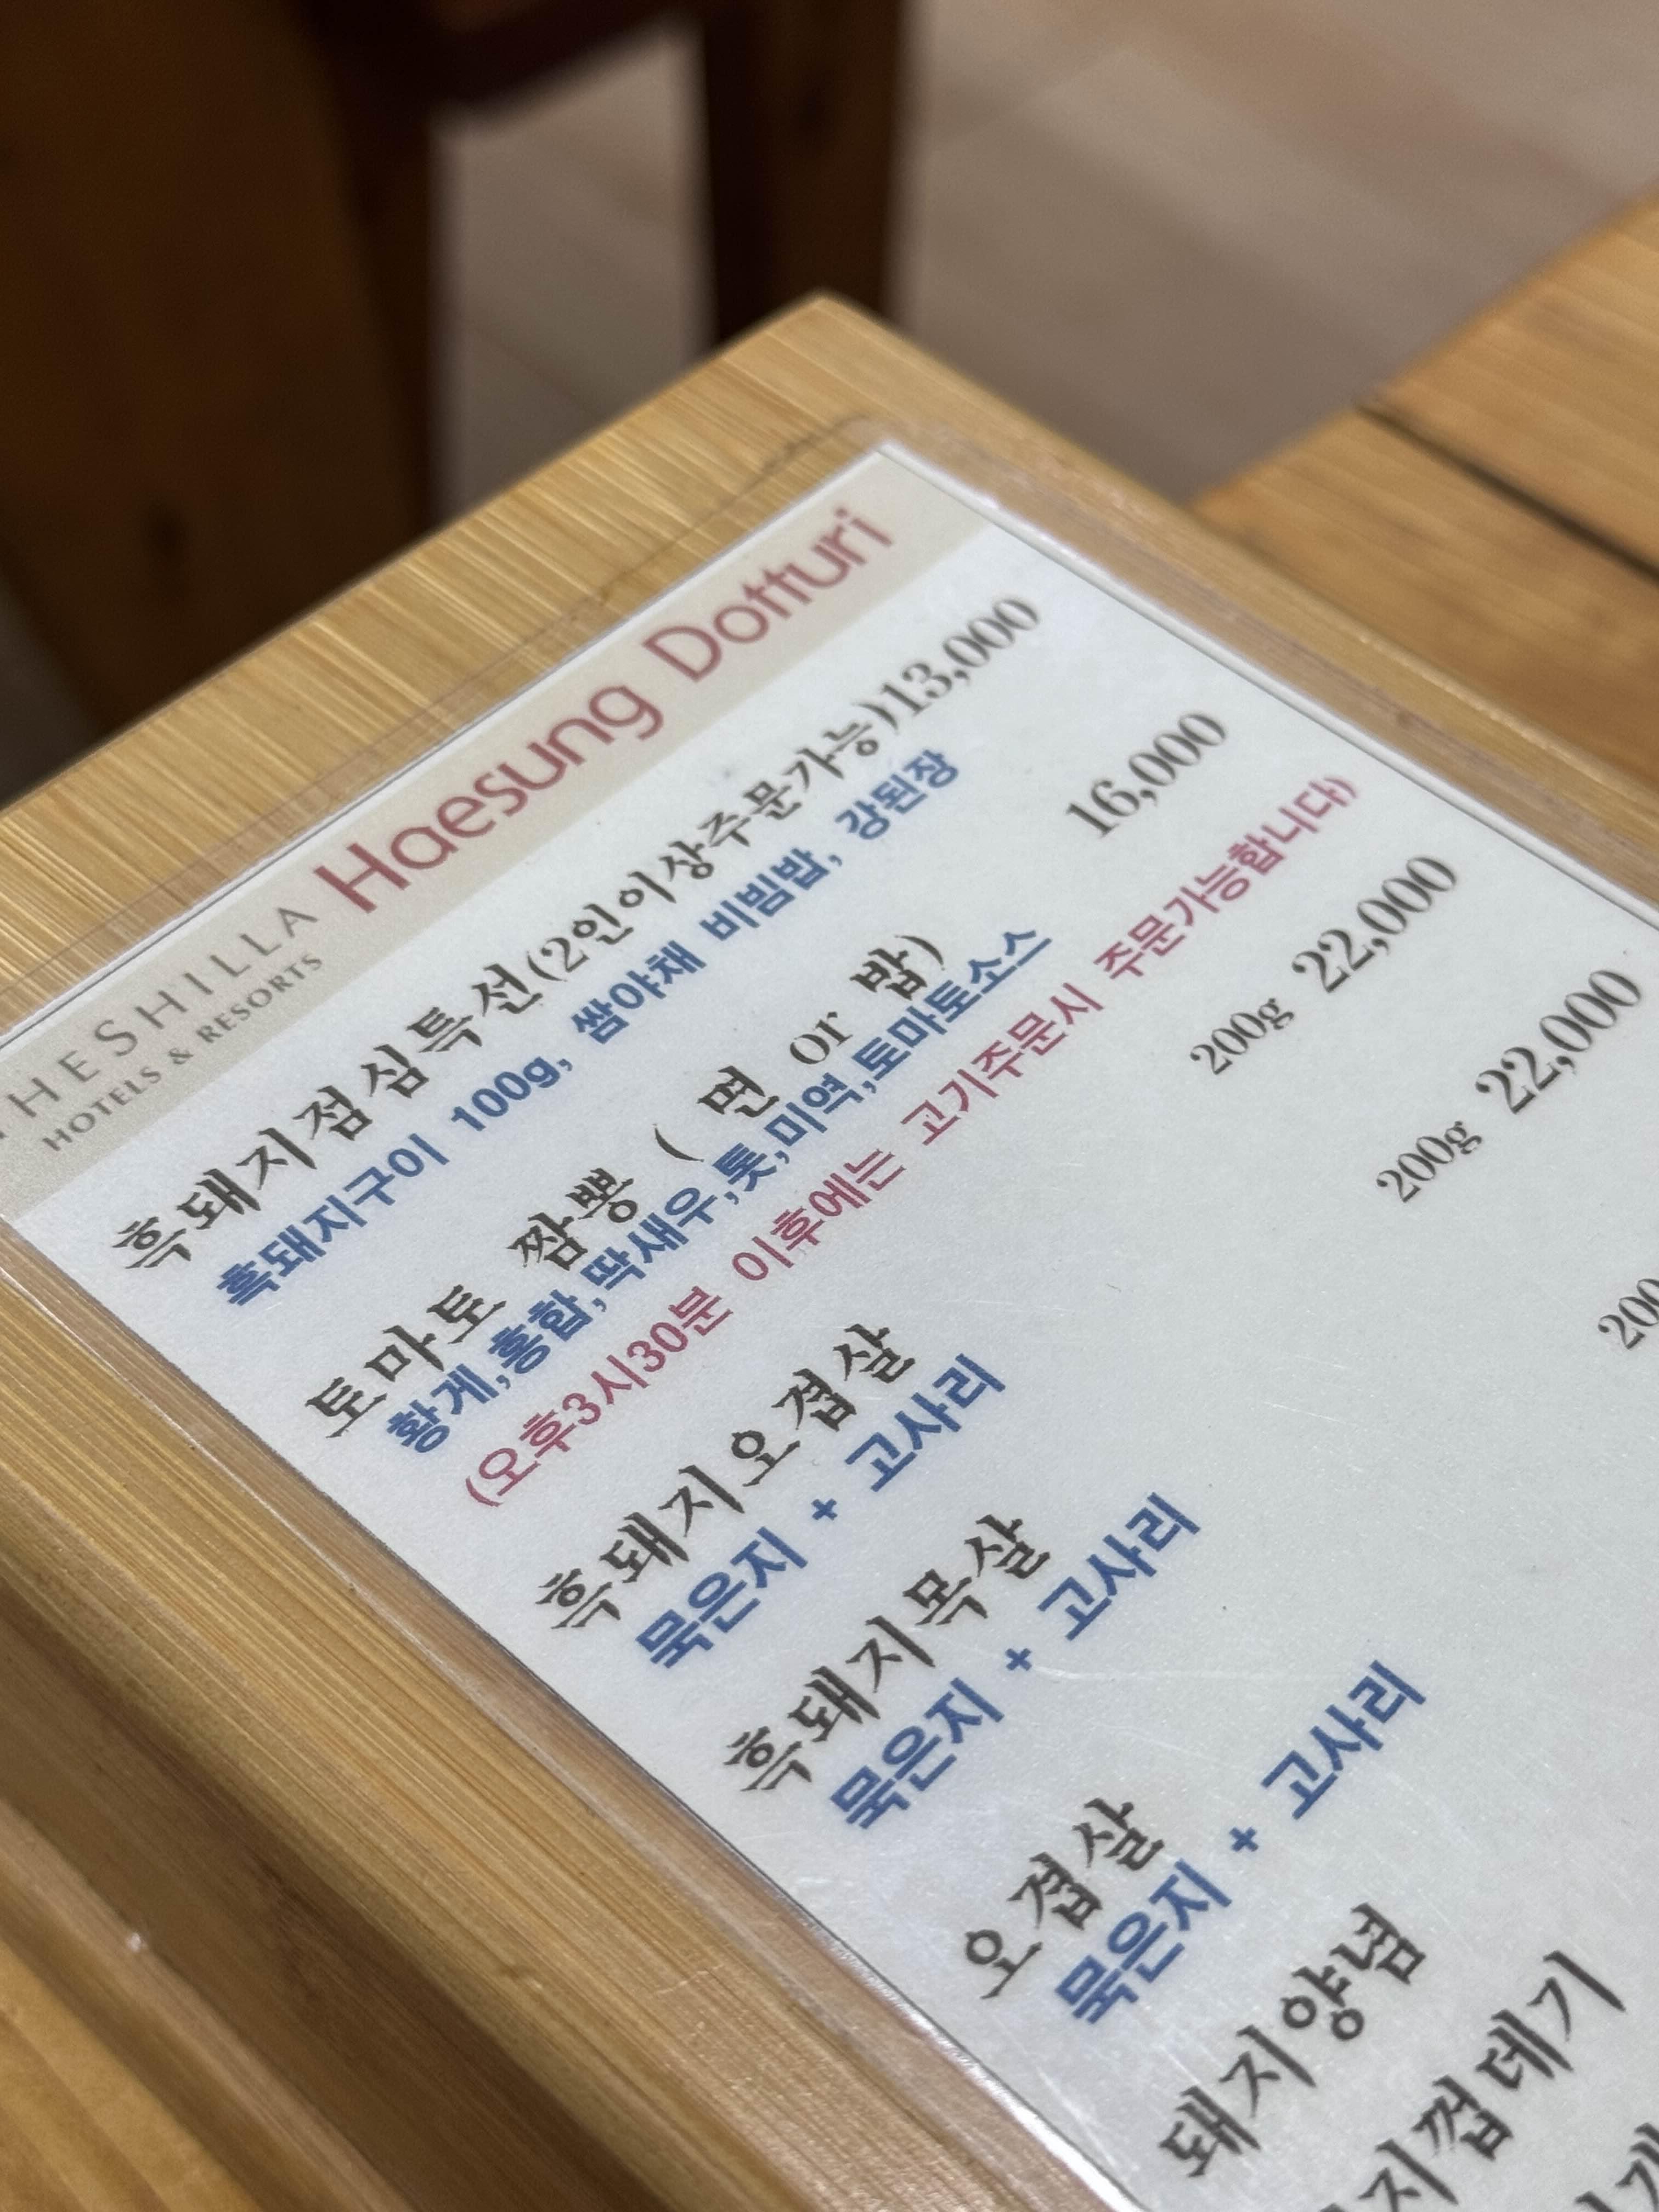 THE SHILLA
HOTELS & RESORTS
Haesung Dotturi
흑돼지점심특선(2인이상주문가능)13,000
흑돼지구이 100g, 쌈야채 비빔밥, 강된장
토마토 짬뽕 ( 면 or 밥) 16,000
황게,홍합,딱새우,톳,미역,토마토소스
(오후3시30분 이후에는 고기주문시 주문가능합니다)
흑돼지오겹살 200g 22,000
묵은지 + 고사리
흑돼지목살 200g 22,000
묵은지 + 고사리
오겹살 200
묵은지 + 고사리
돼지양념
지껍데기